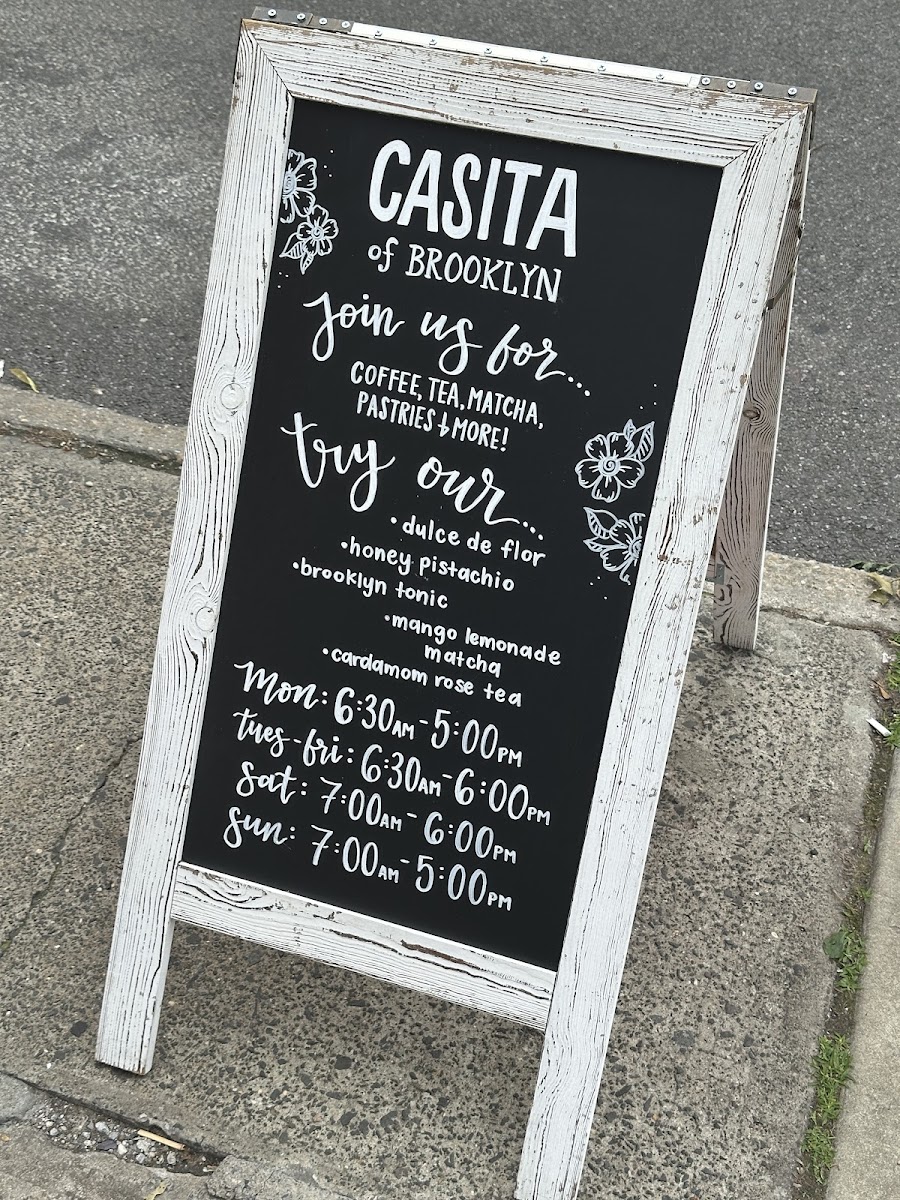 CASITA
of BROOKLYN
Join us for...
COFFEE, TEA, MATCHA,
PASTRIES & MORE!
try our...
•dulce de flor
•honey pistachio
•brooklyn tonic
•mango lemonade
matcha
•cardamom rose tea
Mon: 6:30AM-5:00PM
tues-fri: 6:30AM-6:00PM
Sat: 7:00AM-6:00PM
Sun: 7:00AM-5:00PM